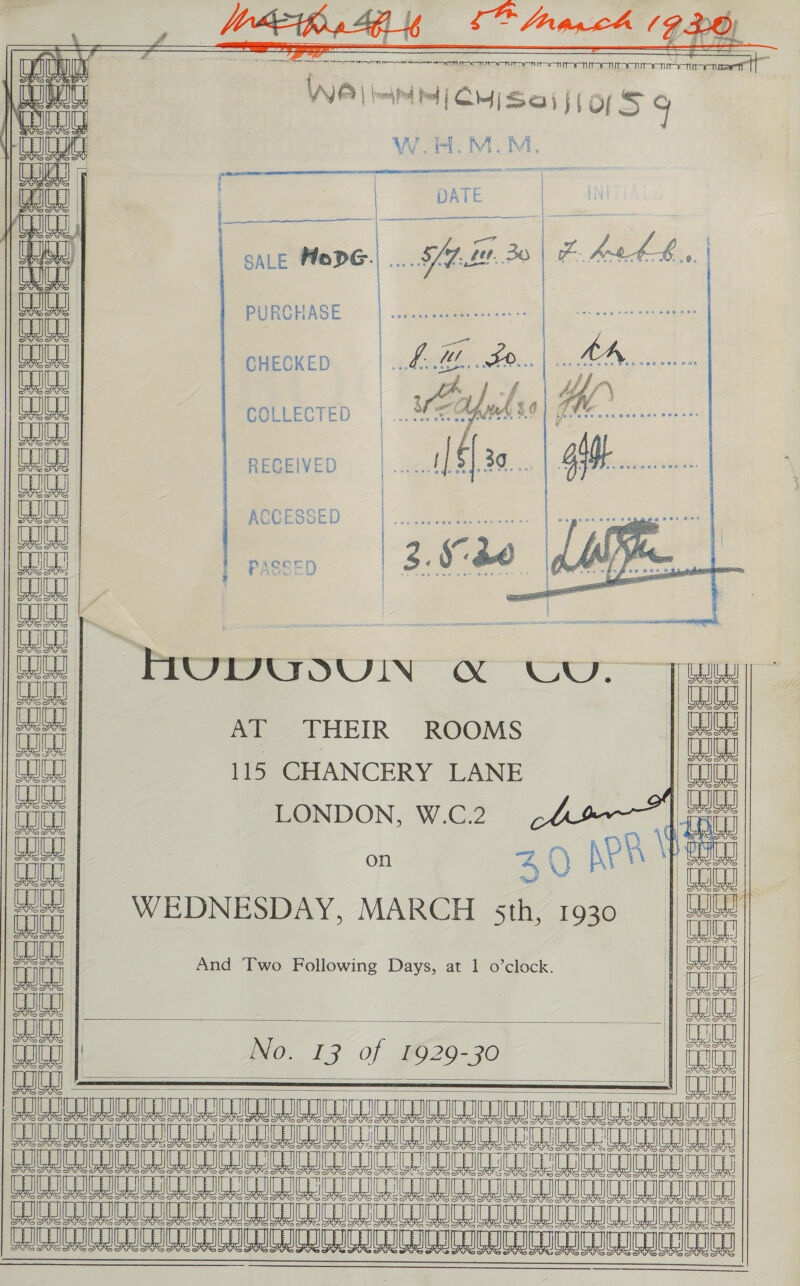 5th March 1930
W.H.M.M.
DATE INITIALS
SALE HODG. 5/7. III. 30
PURCHASE
CHECKED III 30
COLLECTED
RECEIVED 1/5/30
ACCESSED
PASSED 3.5.30
HODGSON & CO.
AT THEIR ROOMS
115 CHANCERY LANE
LONDON, W.C.2
on 30 APR 1930
WEDNESDAY, MARCH 5th, 1930
And Two Following Days, at 1 o'clock.
No. 13 of 1929-30